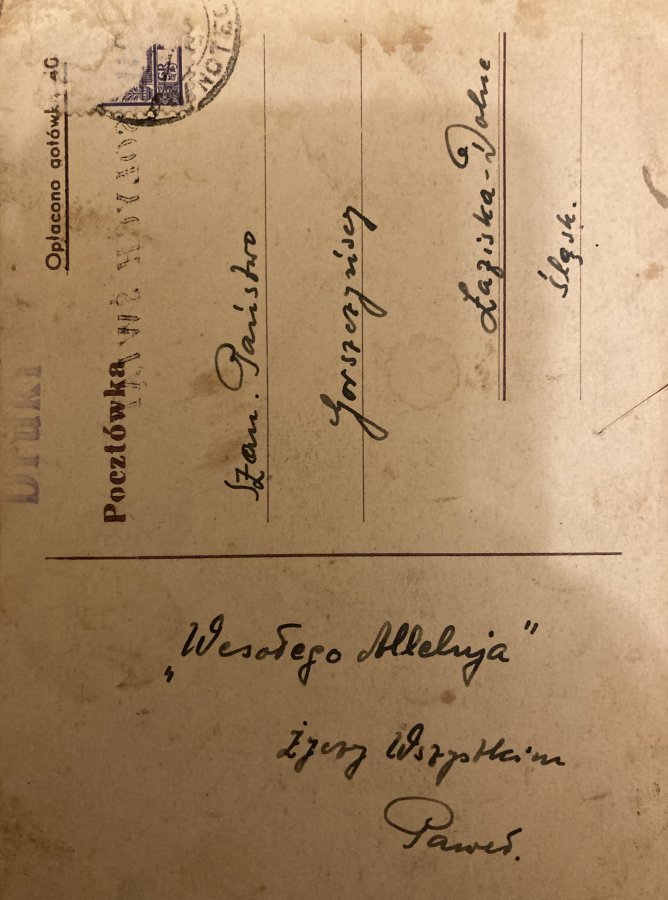 „Wesołego Alleluja"
życzy Wszystkim
Paweł.
Druki
Opłacono gotówką
Pocztówka
Szan. Państwo
Łaziska-Dolne
Śląsk.